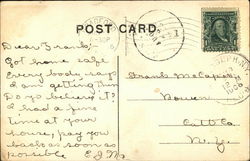 POST CARD.
Dear Frank:-
Got home safe
Every body says
I am getting thin
Do you believe it?
I had a fine
time at your
house, pay you
back as soon as
possible E.J.M.
Frank
Bowen
Catt Co.
N.Y.